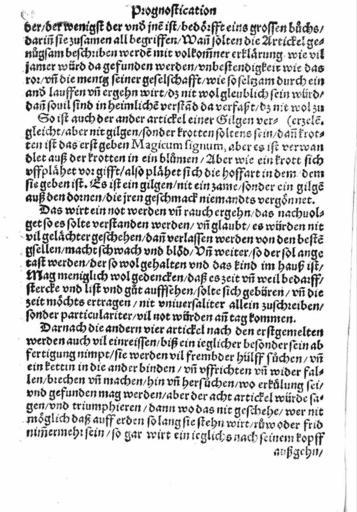 Prognostication
der/der wenigst der vnd jnē ist/bedörfft eins grossen bůchs/
dariñ sie zusamen all begriffen/Wañ solten die Artickel ge-
nůgsam beschriben werdē mit volkomner erklärung wie vil
jamer würd da gefunden werden/vnbestendigkeit wie das
ror/vñ die mentg seiner geselschafft/wie so selzam durch ein
and lauffen vñ ergehn wirt/dz nit wol gleublich sein würd/
dañ souil sind in heimliche verstād da verfaßt/dz nit wol zu
So ist auch der ander artickel einer Gilgen ver- (erzelē.
gleicht/aber nit gilgen/sonder krotten soltens sein/dañ krot-
ten ist das erst geben Magicum signum, aber es ist verwan
dlet auß der krotten in ein blůmen/Aber wie ein krott sich
vffplähet vor gifft/also plähet sich die hoffart in dem dem
sie geben ist. Es ist ein gilgen/nit ein zame/sonder ein gilgē
auß den dornen/die jren geschmack niemandts vergönnet.
Das wirt ein not werden vñ rauch ergehn/das nachuol-
get so es solte verstanden werden/vñ glaubt/es würden nit
vil gelächter geschehen/dañ verlassen werden von den bestē
gsellen/macht schwach vnd blöd/Vñ weiter/so der sol ange
tast werden/der so wol gehalten vnd das kind im hauß ist/
Mag meniglich wol gedencken/daß es zeit vñ weil bedarff/
stercke vnd list vnd gůt auffsehen/solte sich gebüren/vñ die
zeit möchts ertragen/nit vniuersaliter allein zuschreiben/
sonder particulariter/vil not würden añ tag kommen.
Darnach die andern vier artickel nach den erstgemelten
werden auch vil einreissen/biß ein ieglicher besonder sein ab
fertigung nimpt/sie werden vil frembder hülff sůchen/vñ
ein kettin in die ander binden/vñ vffrichten vñ wider fal-
len/brechen vñ machen/hin vñ hersůchen/wo erkülung sei/
vnd gefunden mag werden/aber der acht artickel würde sa-
gen/vnd triumphieren/dann wo das nit geschehe/wer nit
möglich daß auff erden so lang sie stehn wirt/růw oder frid
nimmermehr sein/so gar wirt ein ieglichs nach seinem kopff
außgehn/